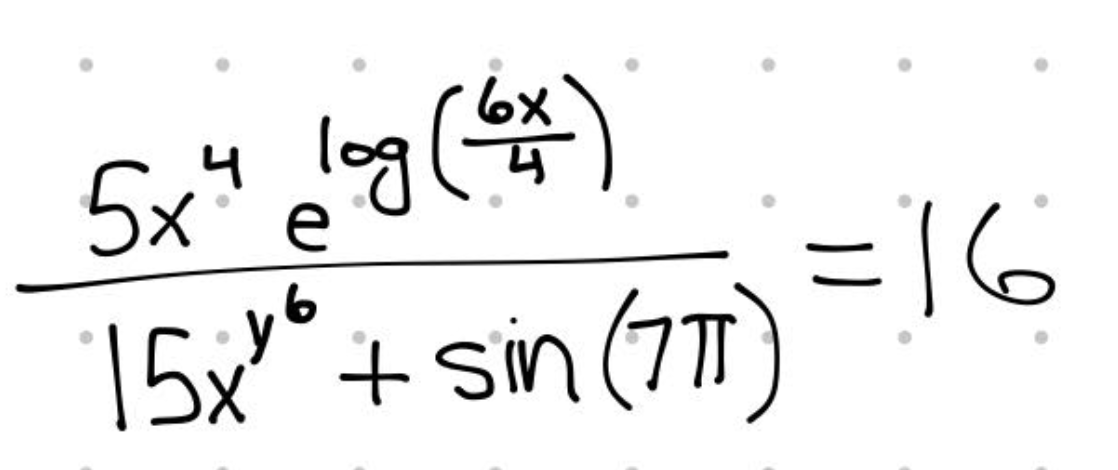 \frac{5x^4 e^{\log\left(\frac{6x}{4}\right)}}{15x^{y^6} + \sin(7\pi)} = 16